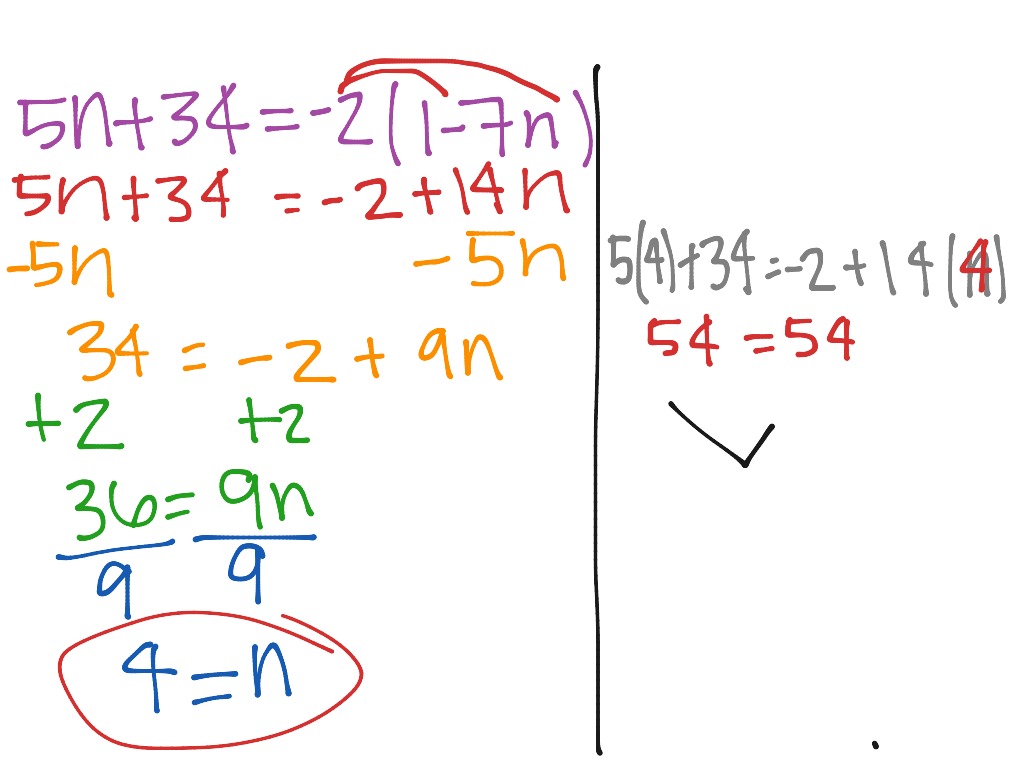 5n+34=-2(1-7n)
5n+34 = -2+14n
-5n -5n
34 = -2 + 9n
+2 +2
36 = 9n
9 9
4=n
5(4)+34=-2+14(4)
54=54